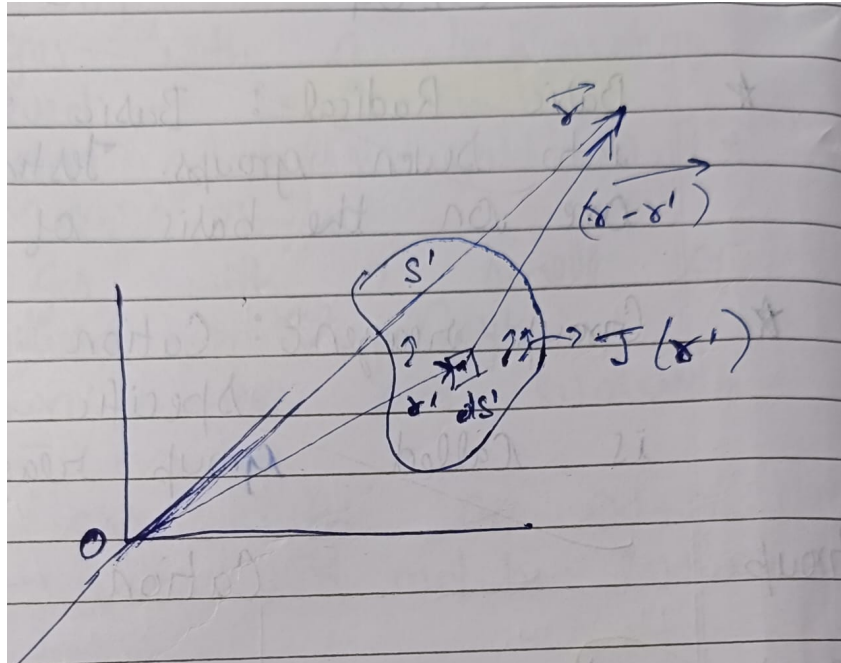 r⃗
(r - r')⃗
S'
J̅ (r')
r'
dS'
O